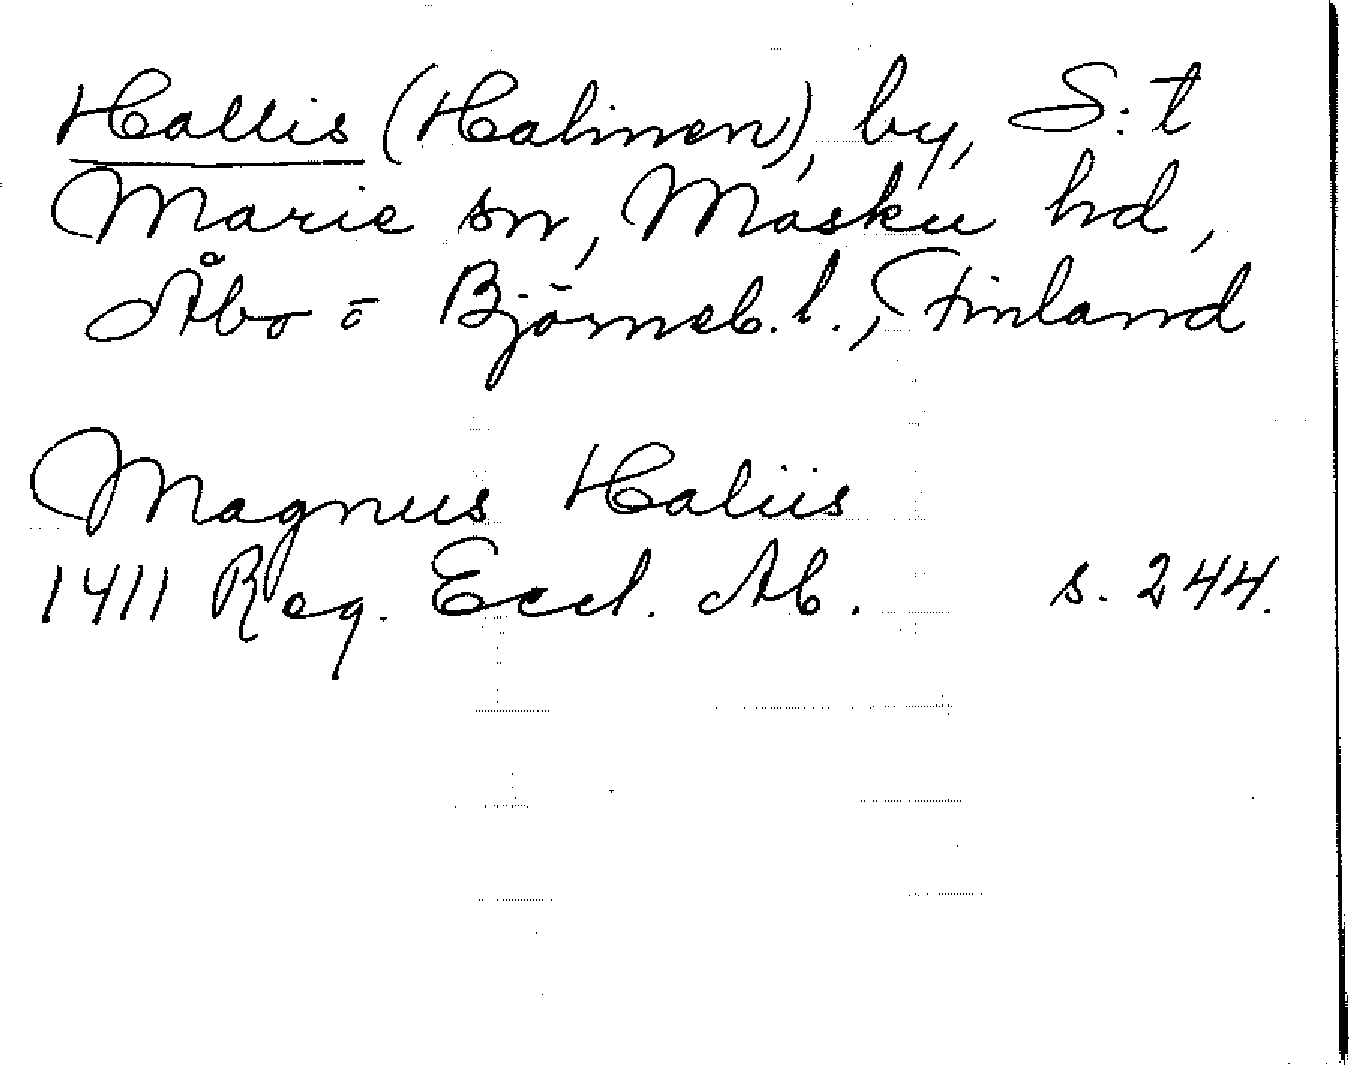 Hallis (Halinen), by, S:t
Marie sn, Masku hd,
Åbo o Björneb. l., Finland
Magnus Haliis
1411 Reg. Eccl. Ab. s. 244.